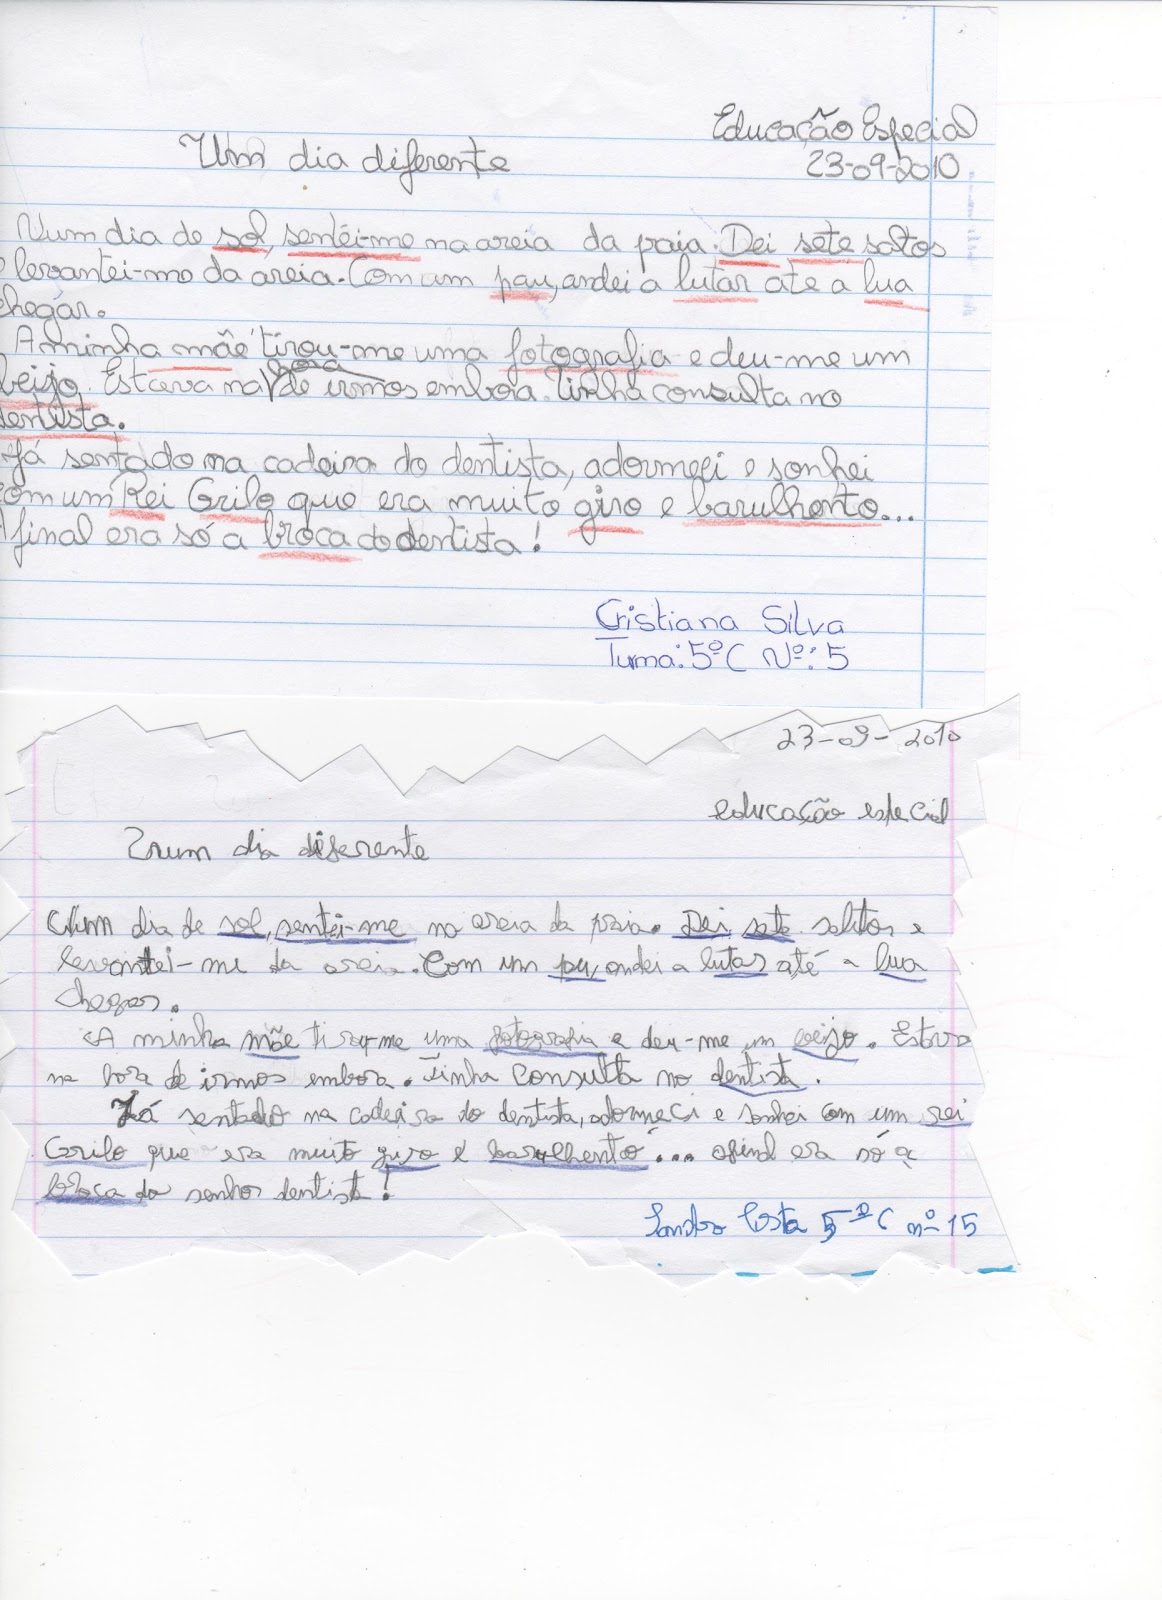 Educação Especial
Um dia diferente
23-09-2010
Num dia de sol, sentei-me na areia da paia. Dei sete saltos
e levantei-me da areia. Com um pau, andei a lutar até a lua
chegar.
A minha mãe tirou-me uma fotografia e deu-me um
beijo. Estava na hora de irmos embora. Tinha consulta no
dentista.
Já sentado na cadeira do dentista, adormeci e sonhei
com um Rei Grilo que era muito giro e barulhento...
Afinal era só a broca do dentista!
Cristiana Silva
Turma: 5ºC Nº: 5
23-09-2010
educação especial
um dia diferente
Num dia de sol, sentei-me na areia da paia. Dei sete saltos e
levantei-me da areia. Com um pu, andei a lutar até a lua
chegar.
A minha mãe tirou-me uma fotografia e deu-me um beijo. Estava
na hora de irmos embora. Tinha consulta no dentista.
Já sentado na cadeira do dentista, adormeci e sonhei com um rei
Grilo que era muito giro e barulhento... afinal era só a
broca do senhor dentista!
Sandro Costa 5ºC nº 15